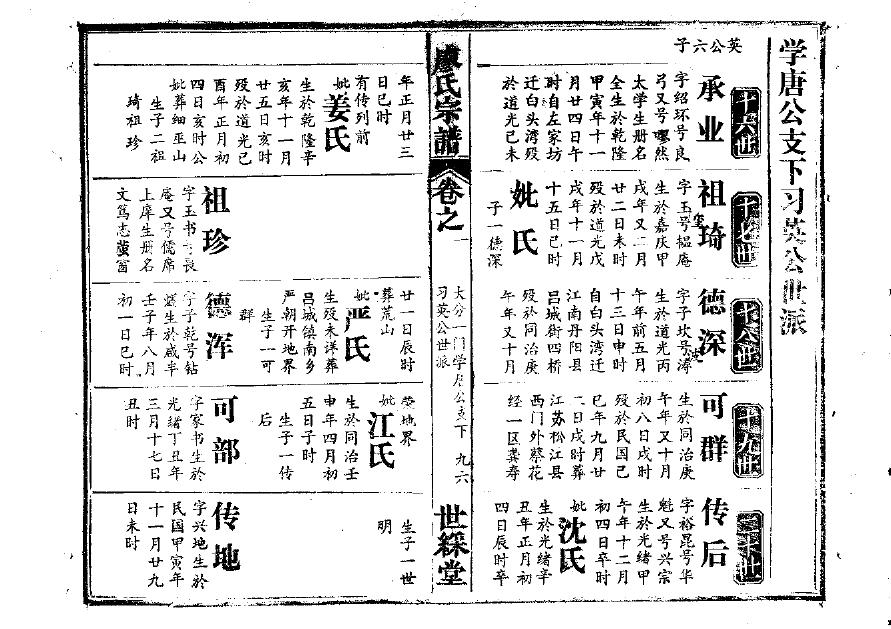 学唐公支下习英公世派
英公六子
十六世
承业
字绍环号良
弓又号醪然
太学生册名
全生於乾隆
甲寅年十一
月廿四日午
时自左家坊
迁白头湾殁
於道光己未
年正月廿三
日巳时
有传列前
妣姜氏
生於乾隆辛
亥年十一月
廿五日亥时
殁於道光己
酉年正月初
四日亥时公
妣葬细巫山
生子二祖
琦祖珍
十七世
祖琦
字玉号韫庵
生於嘉庆甲
戌年又二月
廿二日未时
殁於道光戊
戌年十一月
十五日巳时
妣氏
子一德深
祖珍
字玉书号長
庵又号儒席
上庠生册名
文笃志萤窗
十八世
德深
字子坎号溥
生於道光丙
午年前五月
十三日申时
自白头湾迁
江南丹阳县
吕城街四桥
殁於同治庚
午年又十月
廿一日辰时
葬荒山
妣严氏
生殁未详葬
吕城镇南乡
严朝开地界
生子一可
群
德浑
字子乾号钻
燧生於咸丰
壬子年八月
初一日巳时
十九世
可群
生於同治庚
午年又十月
初八日戌时
殁於民国己
巳年九月廿
二日戌时葬
江苏松江县
西门外蔡花
经一区龚寿
荣地界
妣江氏
生於同治壬
申年四月初
五日子时
生子一传
后
可部
字家书生於
光绪丁丑年
三月十七日
丑时
二十世
传后
字裕昆号华
魁又号兴宗
生於光绪甲
午年十二月
初四日卒时
妣沈氏
生於光绪辛
丑年正月初
四日辰时卒
生子一世
明
传地
字兴地生於
民国甲寅年
十一月廿九
日未时
廖氏宗譜
卷之一
大分一门学唐公支下
习英公世派
九六
世綵堂